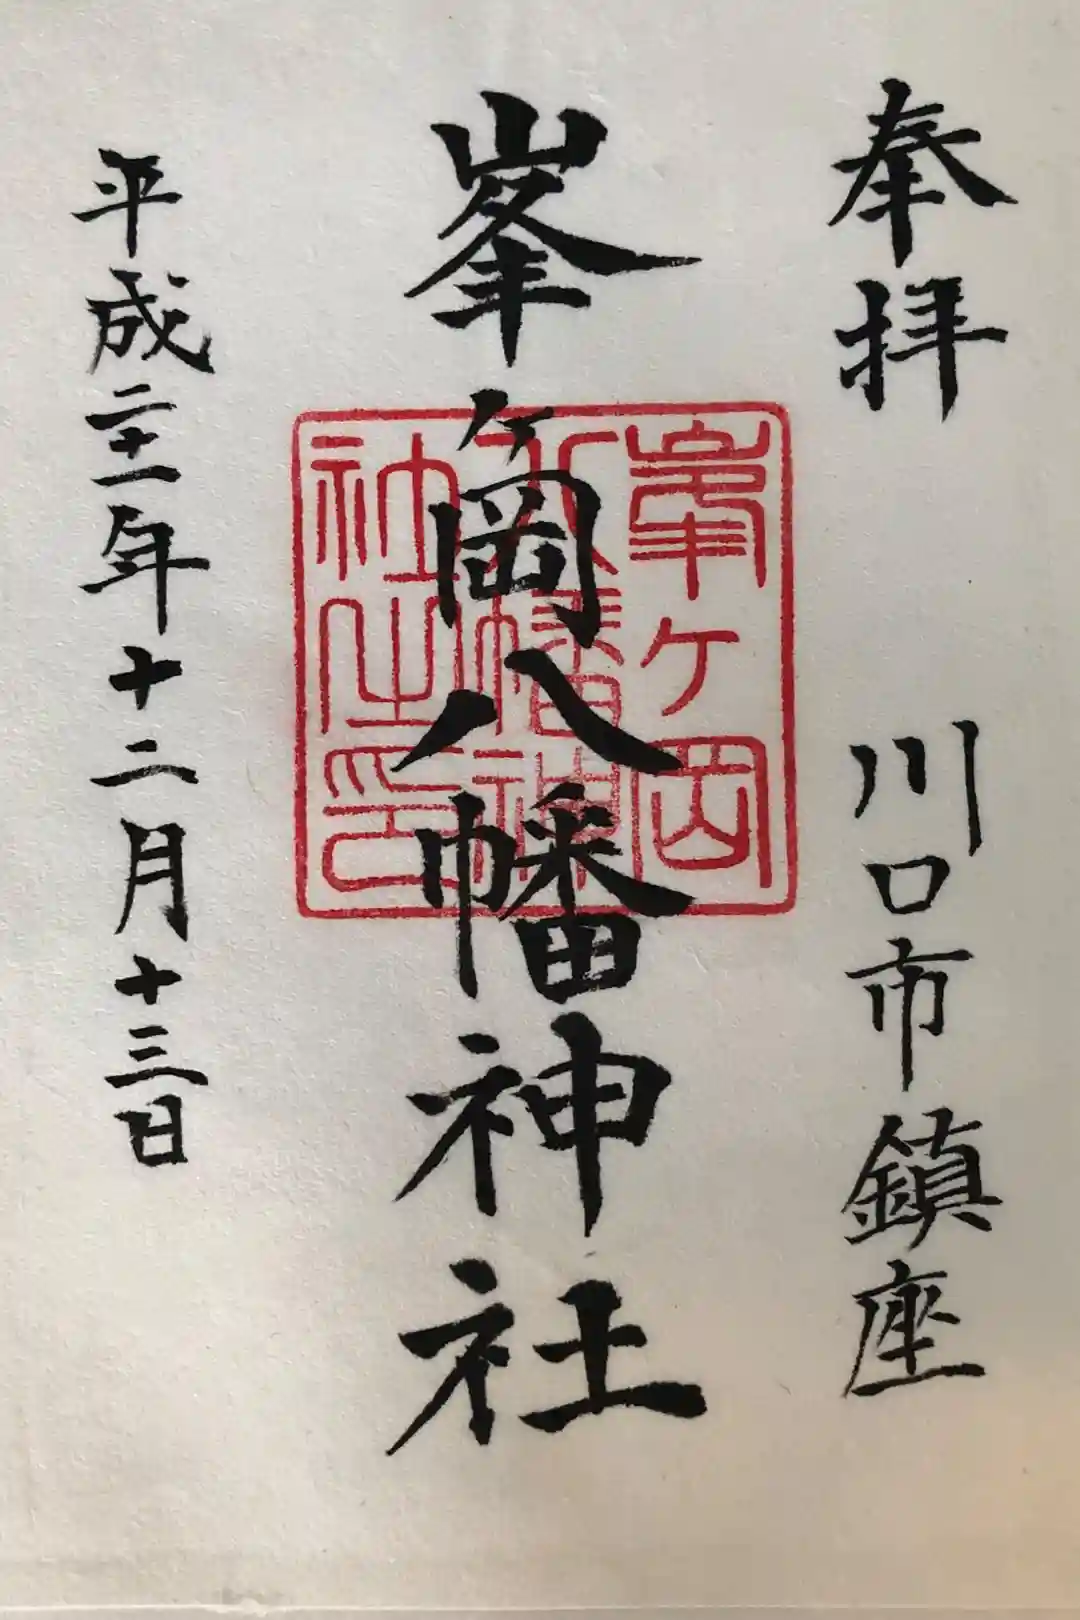 奉拝　川口市鎮座
峯ヶ岡八幡神社
平成二十一年十二月十三日
峯ヶ岡
八幡神
社之印